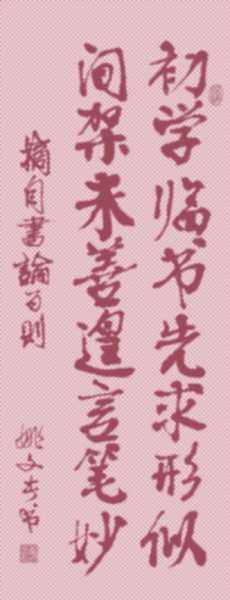 初学临书先求形似
间架未善遑言笔妙
摘自書論百则
姚文奇书